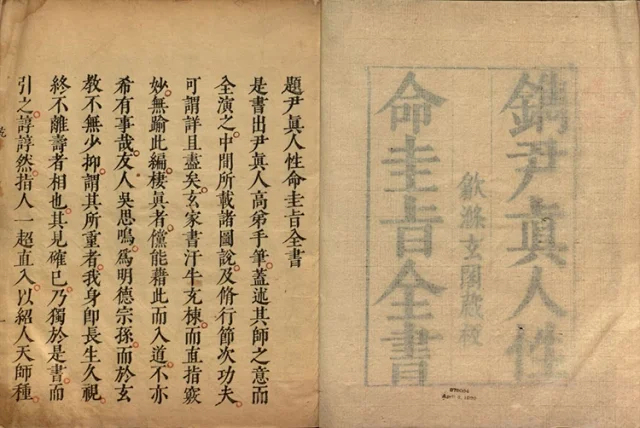 鐫尹眞人性
歙滌玄閣藏板
命圭㫖全書
題尹眞人性命圭㫖全書
是書出尹眞人高弟手筆蓋述其師之意而
全演之中間所載諸圖說及脩行節次功夫
可謂詳且盡矣玄家書汗牛充棟而直指竅
妙無踰此編棲眞者儻能藉此而入道不亦
希有事哉友人吳思鳴爲明德宗孫而於玄
教不無少抑謂其所重者我身卽長生久視
終不離壽者相也其見確已乃獨於是書而
引之諄諄然指人一超直入以紹人天師種